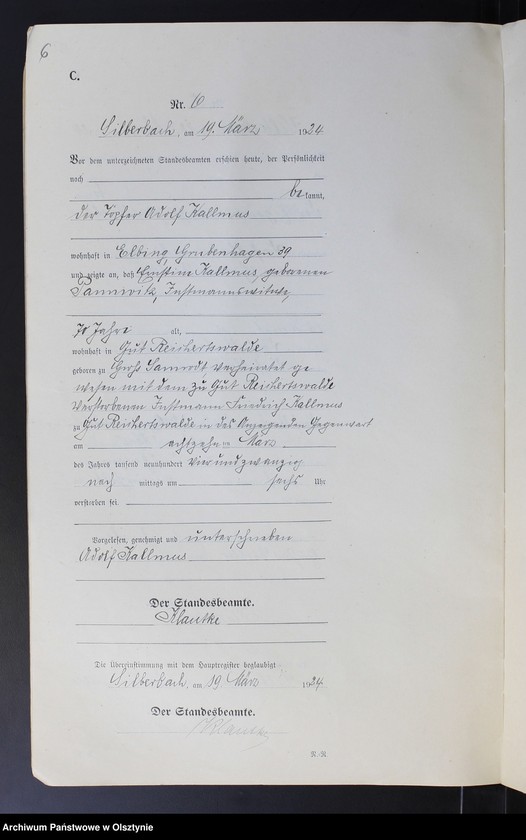 6
C.
Nr. 6
Silberbach, am 19. März 1924.
Vor dem unterzeichneten Standesbeamten erschien heute, der Persönlichkeit
nach
be kannt,
der Töpfer Adolf Kallmus
wohnhaft in Elbing, Grubenhagen 39
und zeigte an, daß Ernstine Kallmus geborenen
Pannwitz, Instmannswitwe,
70 Jahre alt,
wohnhaft in Gut Reichertswalde
geboren zu Groß Samrodt verheiratet ge
wesen mit dem zu Gut Reichertswalde
verstorbenen Instmann Friedrich Kallmus
zu Gut Reichertswalde in des Anzeigenden Gegenwart
am achtzehnten März
des Jahres tausend neunhundert vierundzwanzig
nach mittags um sechs Uhr
verstorben sei.
Vorgelesen, genehmigt und unterschrieben
Adolf Kallmus
Der Standesbeamte.
Klautke
Die Übereinstimmung mit dem Hauptregister beglaubigt
Silberbach, am 19. März 1924.
Der Standesbeamte.
Klautke
N.-R.
Archiwum Państwowe w Olsztynie